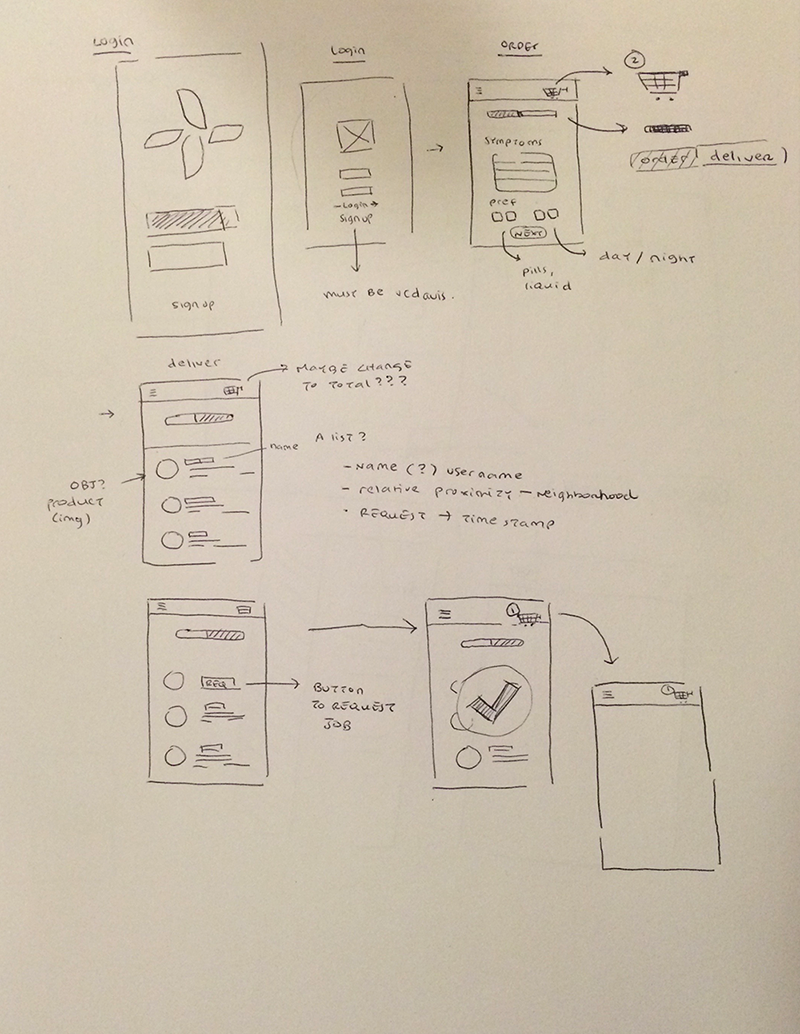 Login
signup
Login
-Login→
signup
must be ucdavis.
ORDER
2
symptoms
pref
NEXT
order / deliver
day / night
pills,
liquid
deliver
change
to total???
name
OBJ?
product
(img)
A list?
- Name (?) username
- relative proximity - neighborhood
· REQUEST → Time stamp
REQ
Button
to request
job
1
1